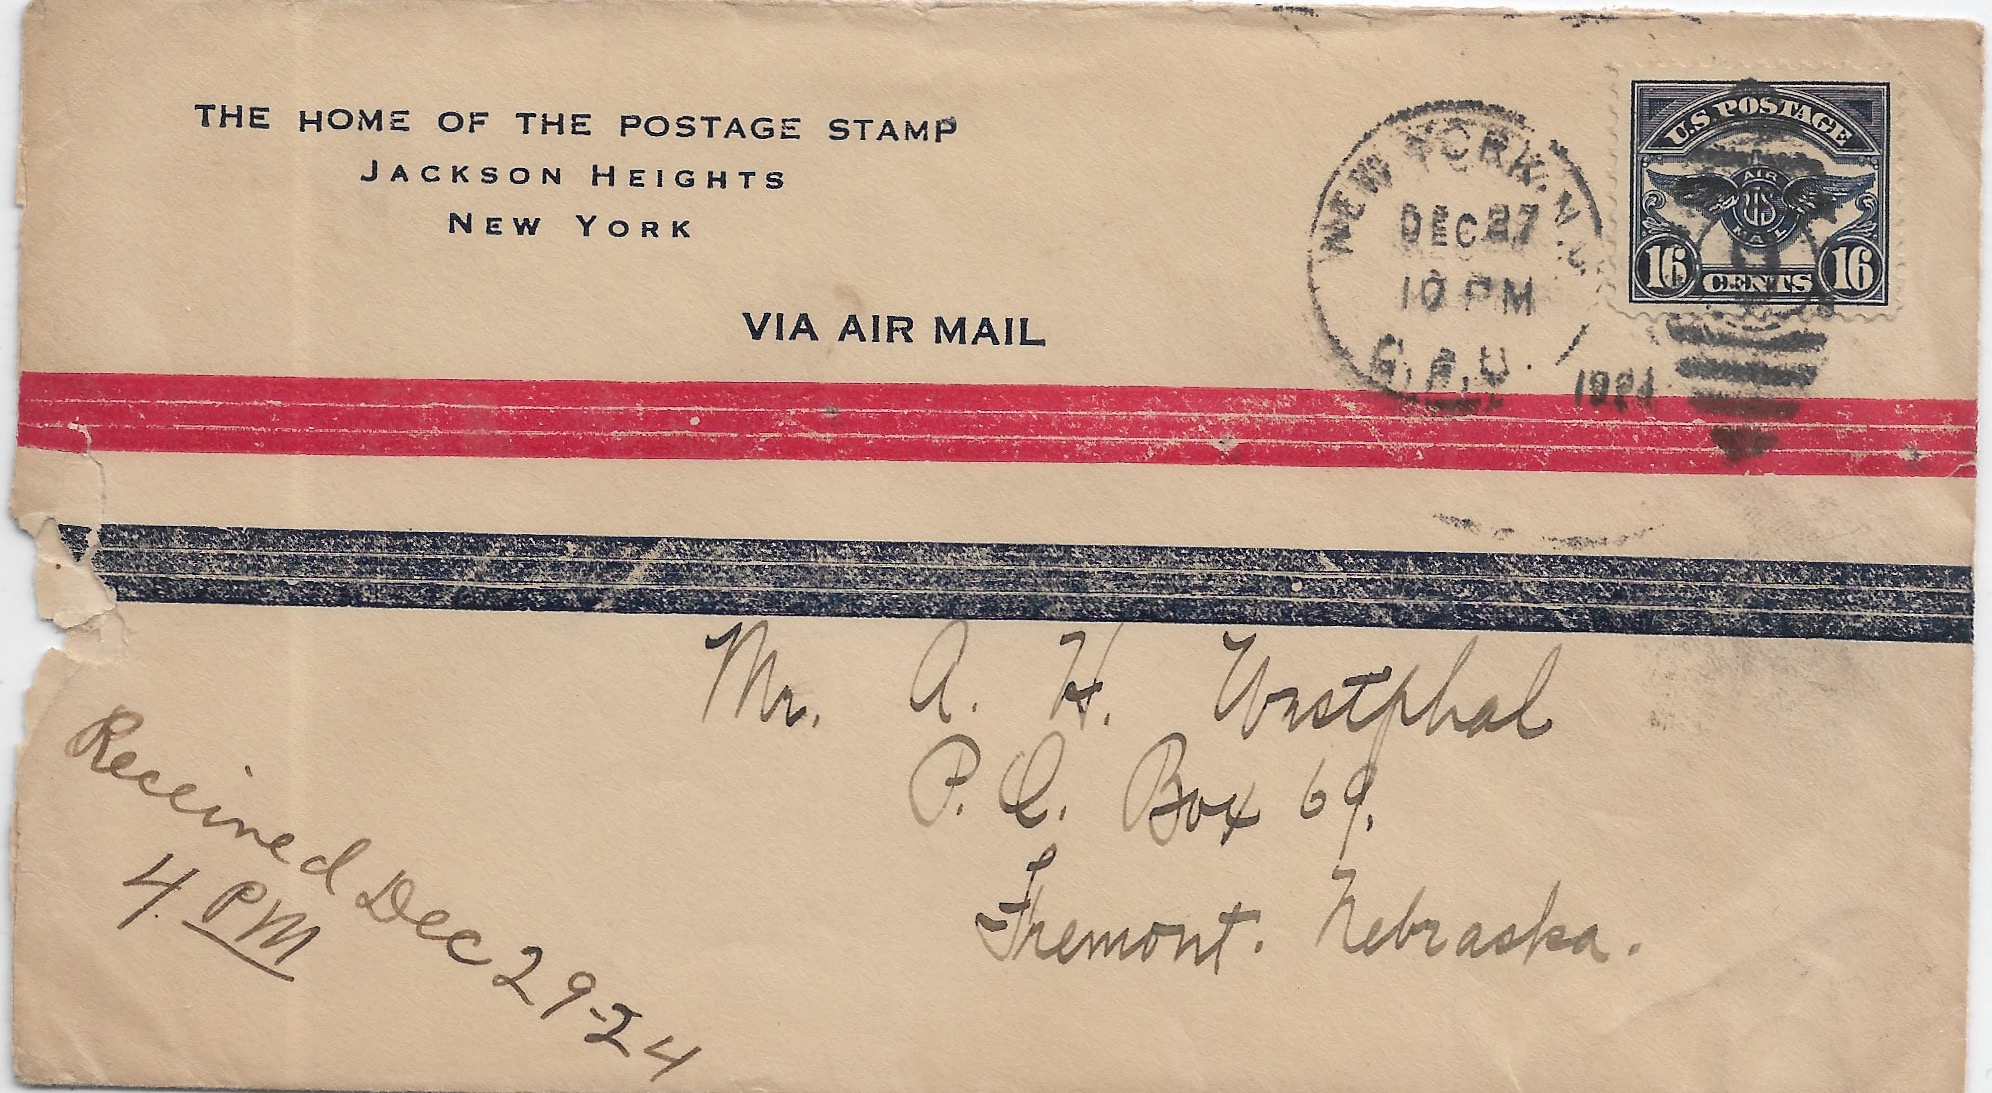 THE HOME OF THE POSTAGE STAMP
JACKSON HEIGHTS
NEW YORK
VIA AIR MAIL
NEW YORK, N.Y.
DEC 27
10 PM
1924
U.S. POSTAGE
AIR
US
MAIL
16 CENTS 16
Mr. A. H. Westphal
P. O. Box 69.
Fremont. Nebraska.
Received Dec 29-24
4 PM